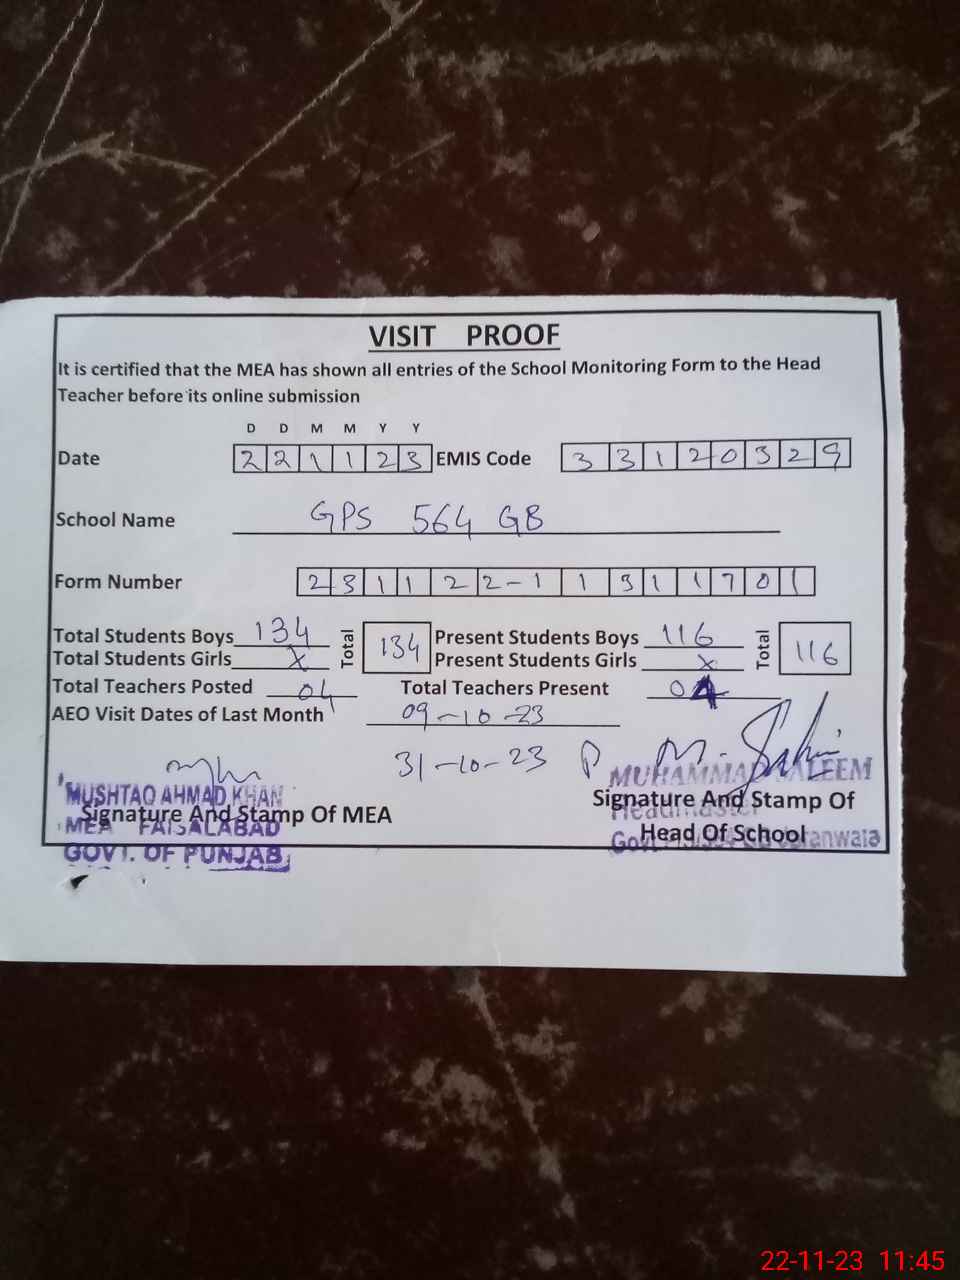 VISIT PROOF
It is certified that the MEA has shown all entries of the School Monitoring Form to the Head
Teacher before its online submission
D D M M Y Y
Date 2 2 1 1 2 3 EMIS Code 3 3 1 2 0 3 2 9
School Name GPS 564 GB
Form Number 2 3 1 1 2 2-1 1 3 1 1 7 0 1
Total Students Boys 134 Total 134 Present Students Boys 116 Total 116
Total Students Girls x Present Students Girls x
Total Teachers Posted 04 Total Teachers Present 04
AEO Visit Dates of Last Month 09-10-23
31-10-23
MUSHTAQ AHMAD KHAN
MEA FAISALABAD
GOVT. OF PUNJAB
Signature And Stamp Of MEA
MUHAMMAD SALEEM
Headmaster
Signature And Stamp Of
Head Of School
22-11-23 11:45